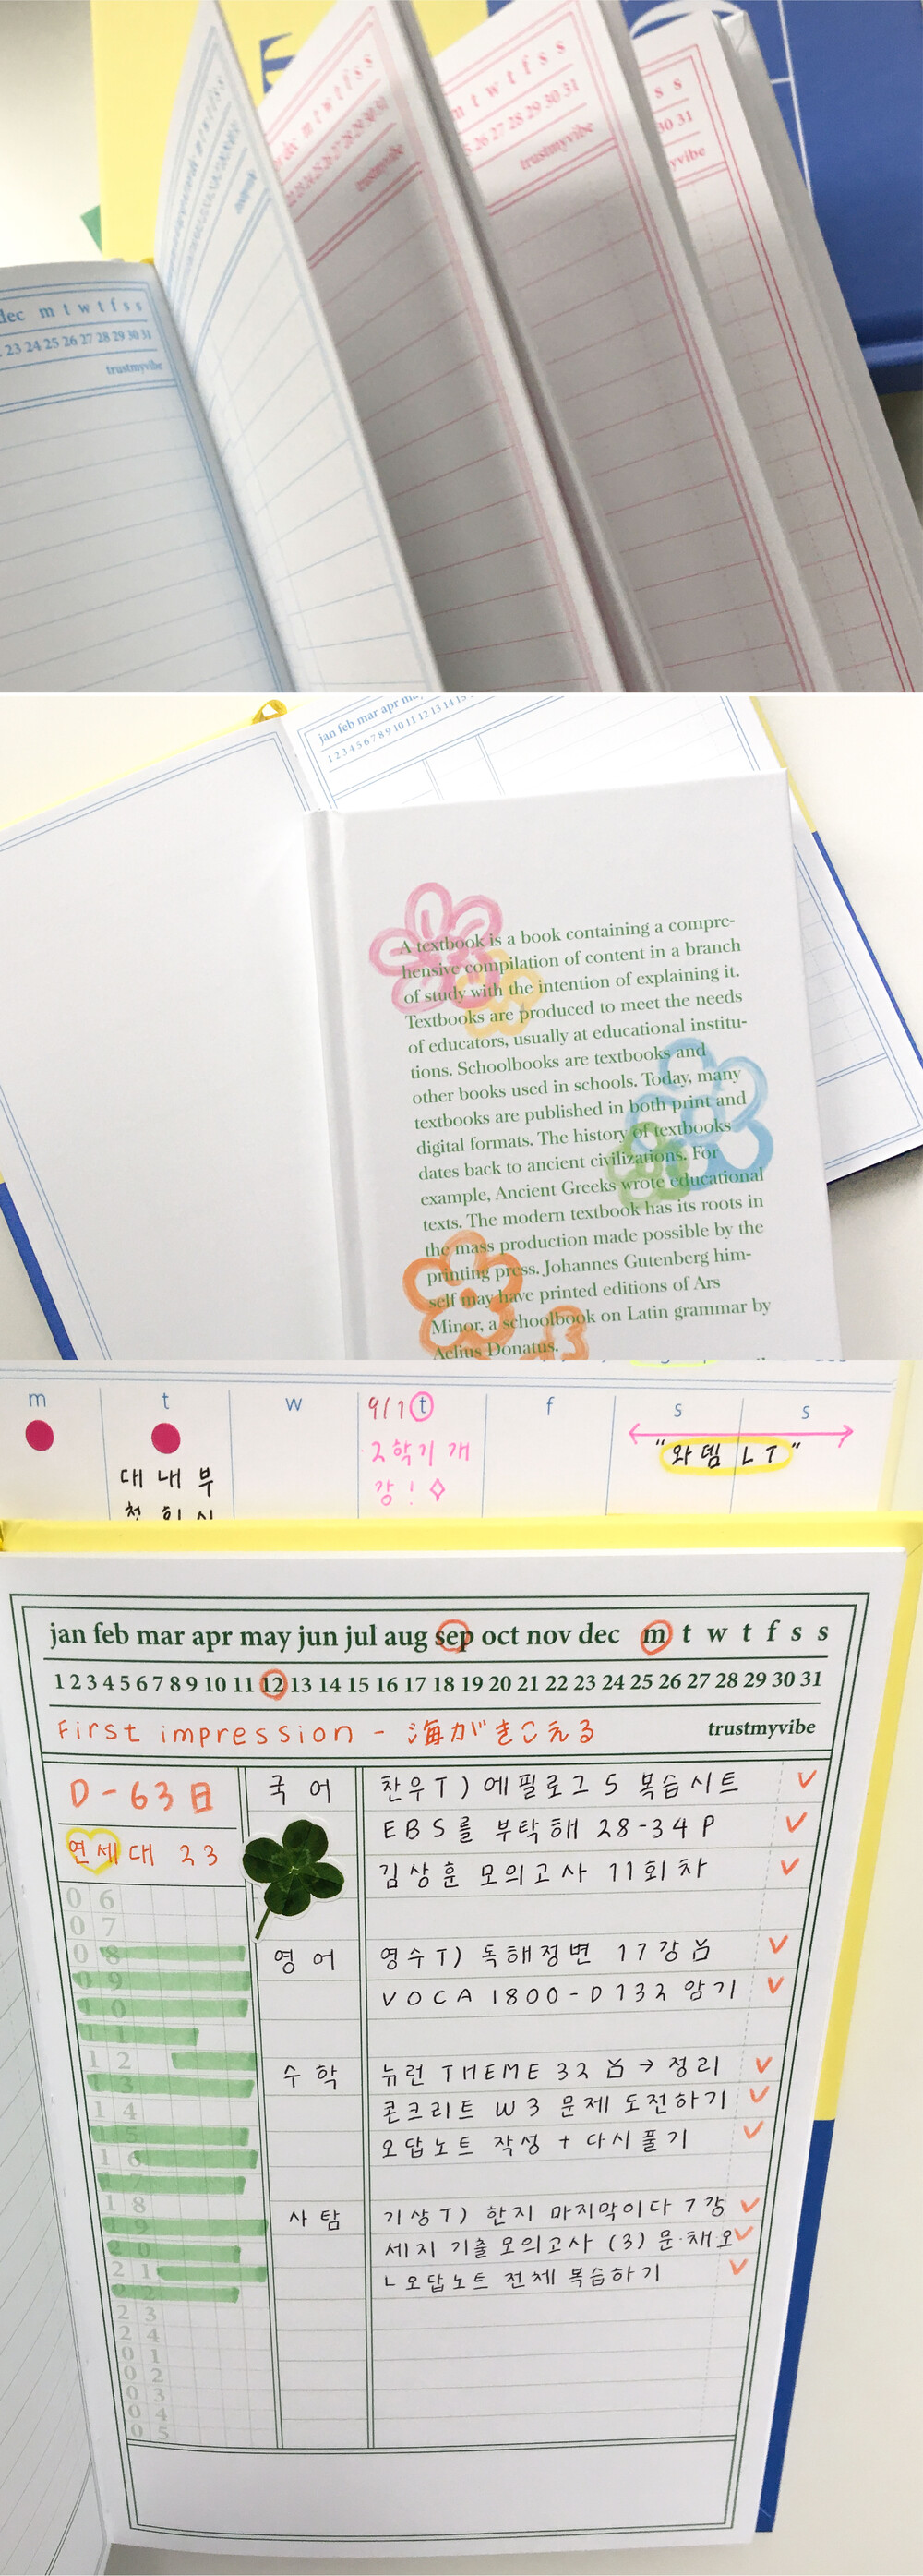 m t w t f s s
dec m t w t f s s
m t w t f s s
s s
26 27 28 29 30 31
30 31
trustmyvibe
trustmyvibe
dec m t w t f s s
23 24 25 26 27 28 29 30 31
trustmyvibe
jan feb mar apr
1 2 3 4 5 6 7 8 9 10 11 12 13 14 15
A textbook is a book containing a compre-
hensive compilation of content in a branch
of study with the intention of explaining it.
Textbooks are produced to meet the needs
of educators, usually at educational institu-
tions. Schoolbooks are textbooks and
other books used in schools. Today, many
textbooks are published in both print and
digital formats. The history of textbooks
dates back to ancient civilizations. For
example, Ancient Greeks wrote educational
texts. The modern textbook has its roots in
the mass production made possible by the
printing press. Johannes Gutenberg him-
self may have printed editions of Ars
Minor, a schoolbook on Latin grammar by
Aelius Donatus.
m t w 9/1 t f s s
대 내 부
2학기 개
강!
"와뎀 LT"
jan feb mar apr may jun jul aug sep oct nov dec m t w t f s s
1 2 3 4 5 6 7 8 9 10 11 12 13 14 15 16 17 18 19 20 21 22 23 24 25 26 27 28 29 30 31
First impression - 海がきこえる
trustmyvibe
D-63日
연세대 23
06
07
08
09
10
11
12
13
14
15
16
17
18
19
20
21
22
23
24
01
02
03
04
05
국어
찬우T) 에필로그 5 복습시트
EBS를 부탁해 28-34P
김상훈 모의고사 11회차
영어
영수T) 독해정변 17강
VOCA 1800-D132 암기
수학
뉴런 THEME 32 → 정리
콘크리트 W3 문제 도전하기
오답노트 작성 + 다시풀기
사탐
기상T) 한지 마지막이다 7강
세지 기출 모의고사 (3) 문·채·오
ㄴ오답노트 전체 복습하기